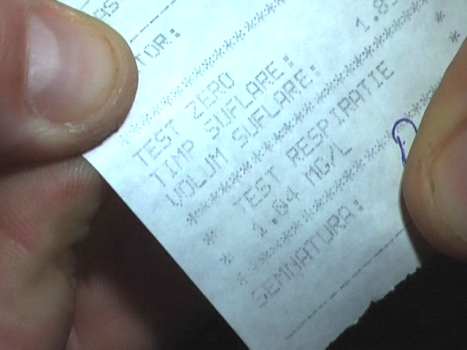 AS
TOR:
*********************
TEST ZERO
TIMP SUFLARE: 1.8
VOLUM SUFLARE:
*********************
* TEST RESPIRATIE *
* 1.04 MG/L
*********************
SEMNATURA: